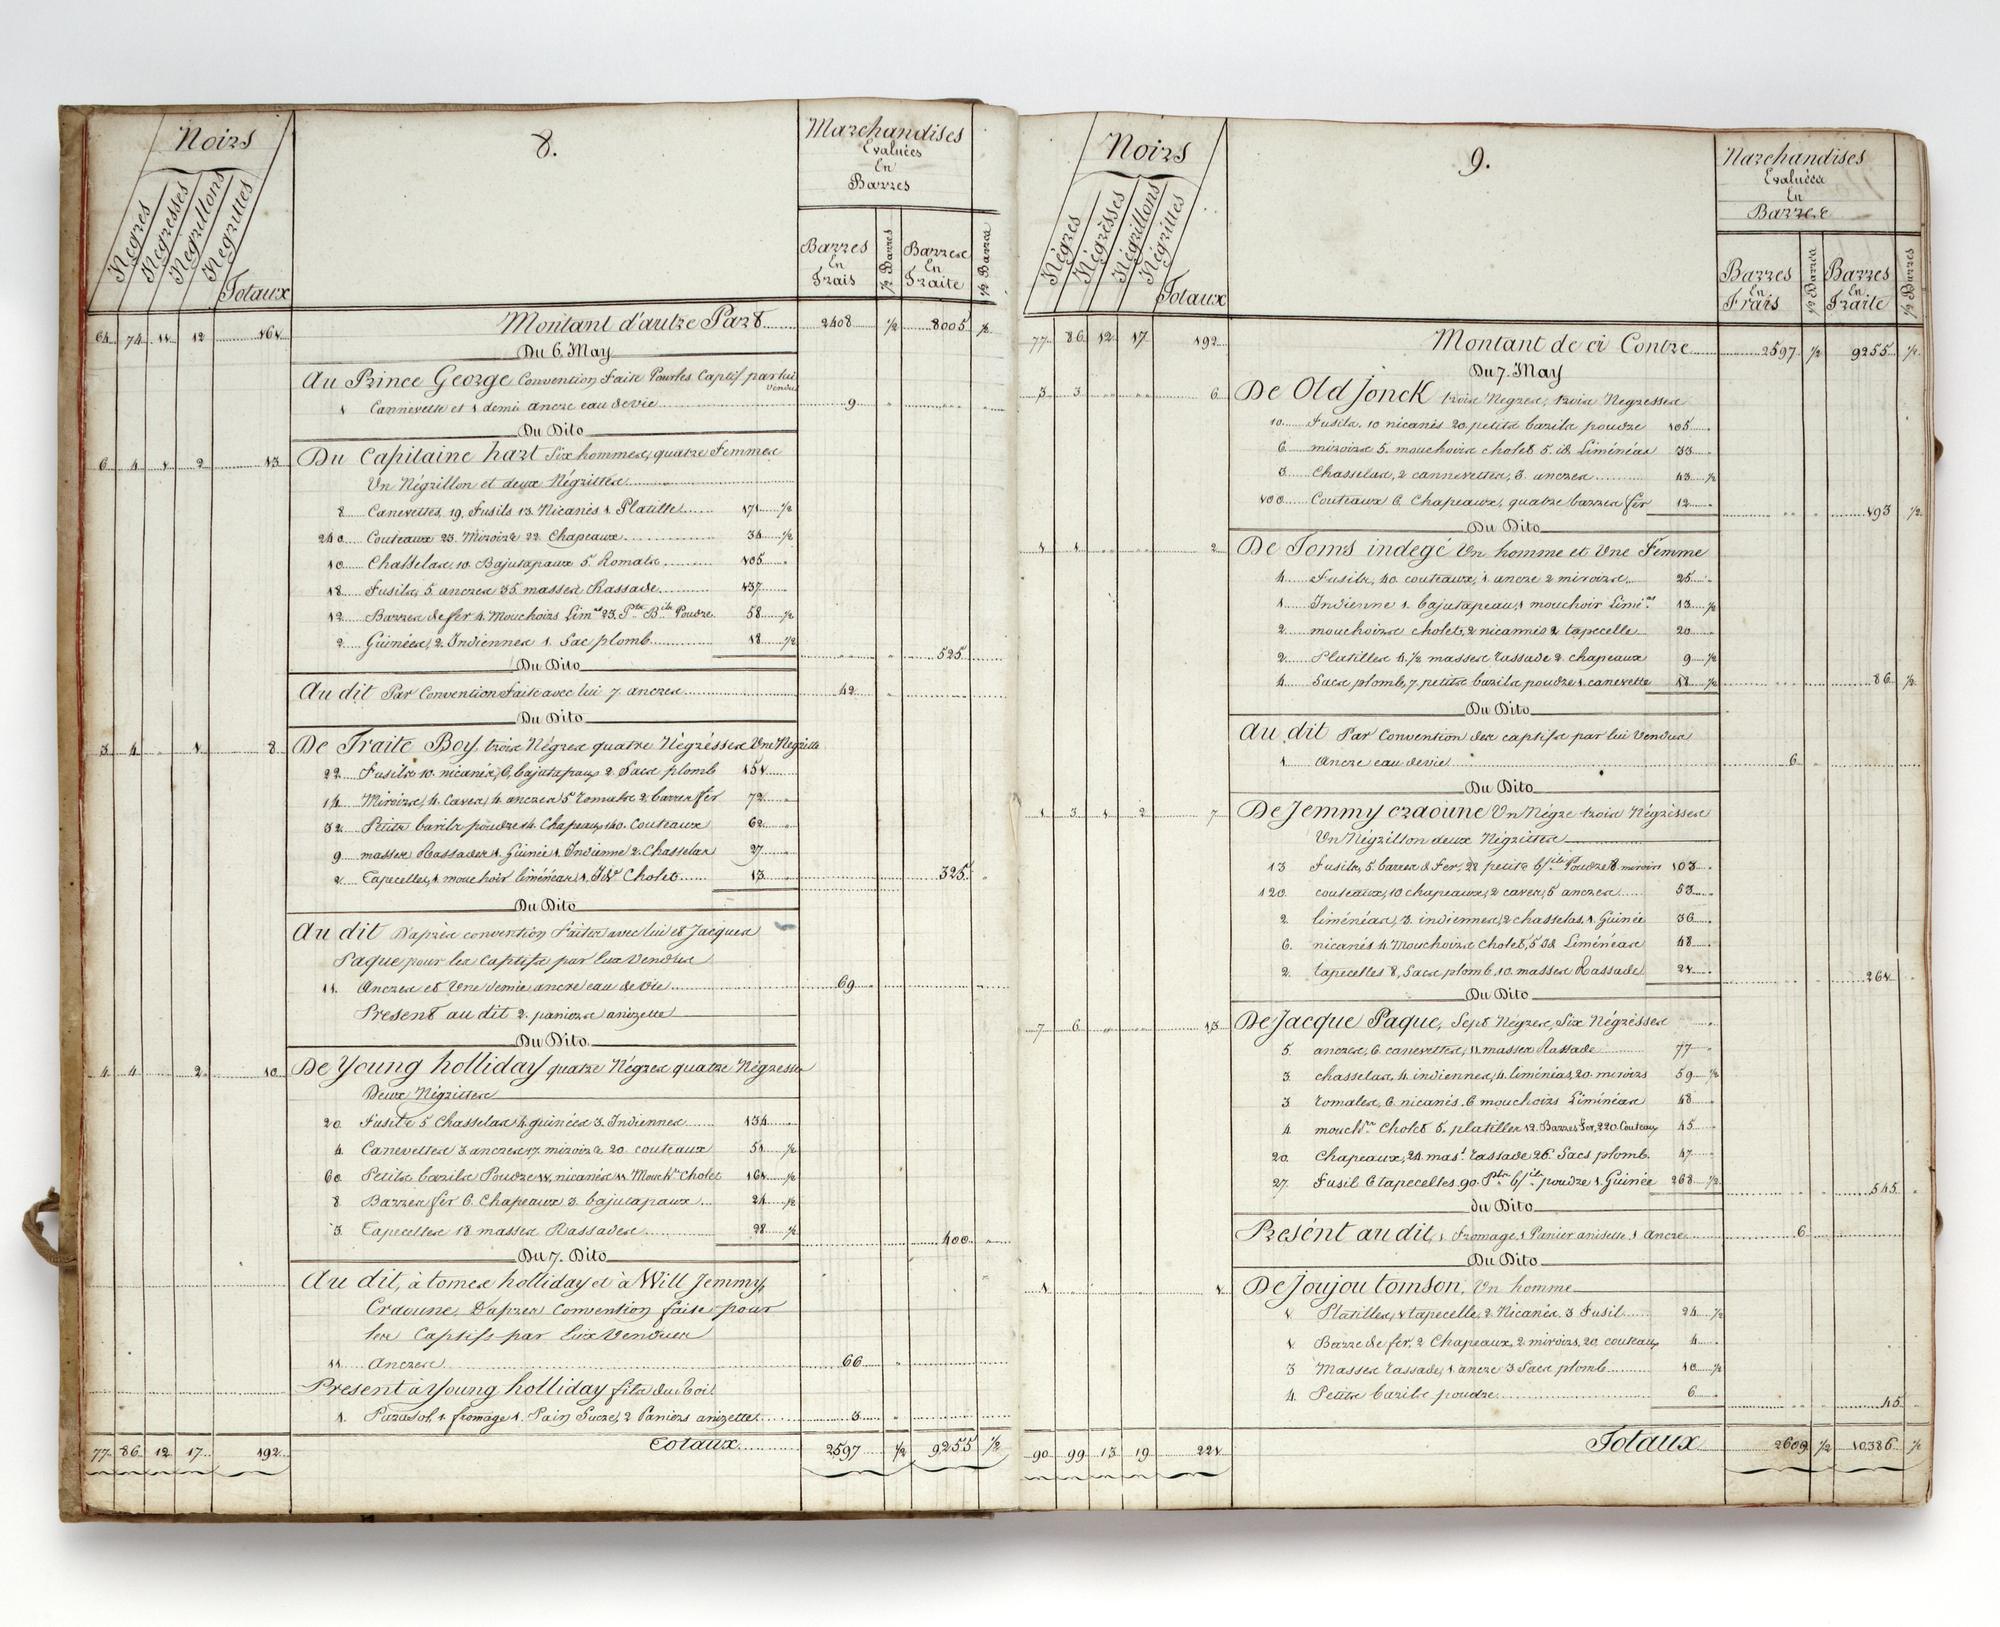 Noirs
Nègres
Negresses
Negrillons
Negrittes
Totaux
8.
Marchandises
Evaluées
En
Barres
Barres
En
Frais
1/2 Barres
Barres
En
Traite
1/2 Barres
64 74 11 12 161 Montant d'autre Part 2408 1/2 8005 1/2
Du 6. May
Au Prince George Convention Faite Pour les Captifs par lui Vendus
1 Cannevette et 1 demi ancre eau de vie 9
Du Dito
6 4 1 2 13 Du Capitaine hart Six hommes, quatre Femmes
Un Négrillon et deux Négrittes
8 Canevettes, 19. Fusils 13. Nicanés 1. Platille 171 1/2
240 Couteaux 23. Miroirs 22. Chapeaux 34 1/2
10 Chasselas, 10. Bajutapaux 5. Romals 105
18 Fusils, 5 ancres 35 masses Rassade 137
12 Barres de fer 4. Mouchoirs Lim.as 23. P.ts B.ils Poudre 58 1/2
2 Guinées, 2. Indiennes 1. Sac plomb 18 1/2
525
Du Dito
Au dit Par Convention Faite avec lui 7. ancres 42
Du Dito
3 4 1 8 De Traite Boy, trois Négres quatre Négrésses Une Négritte
22 Fusils 10. nicanés, 6, bajutapaux 2. Sacs plomb 151
14 Miroirs, 4. Caves, 4. ancres 5 romals 2. barres fer 72
32 Petits barils poudre 14. Chapeaux 140. Couteaux 62
9 masses Rassades 1. Guinée 1. Indienne 2. Chasselas 27
2 Tapecelles, 1 mouchoir liménéas, 1. Id.t Cholet 13
325
Du Dito
Au dit D'après convention Faites avec lui et Jacques
Paque pour les Captifs par Eux Vendus
11. Ancres et Une demie ancre eau de vie 69
Present au dit 2. paniers anizette
Du Dito
4 4 2 10 De Young holliday quatre Négres quatre Négresses
Deux Négrittes
20 Fusils 5 Chasselas 4. guinées 3. Indiennes 134
4 Canevettes 3 ancres 17. miroirs 20 couteaux 51 1/2
60 Petits barils Poudre 11, nicanés 11 Mouch.rs Cholet 161 1/2
8 Barres fer 6. Chapeaux 3. bajutapaux 24 1/2
3 Tapecelles 18 masses Rassades 28 1/2
400
Du 7. Dito
Au dit, à tomes holliday et à Will Jemmy,
Craoune, D'apres Convention faite pour
les Captifs par Eux Vendues
11 Ancres 66
Present à Young holliday fils du Roi
1. Parasol, 1. fromage 1. Pain Sucre, 2 Paniers anizette 3
77 86 12 17 192 Totaux 2597 1/2 9255 1/2
Noirs
Négres
Négrésses
Négrillons
Négrittes
Totaux
9.
Marchandises
Evaluées
En
Barres
Barres
En
Frais
1/2 Barres
Barres
En
Traite
1/2 Barres
77 86 12 17 192 Montant de ci Contre 2597 1/2 9255 1/2
Du 7. May
3 3 6 De Old Jonck trois Negres, trois Negresses
10 Fusils. 10 nicanés 20, petits barils poudre 105
6 miroirs 5. mouchoirs cholet 5. id. Liménéas 33
3 Chasselas, 2 cannevettes, 3. ancres 43 1/2
100 Couteaux 6. Chapeaux, quatre barres fer 12
193 1/2
Du Dito
1 1 2 De Toms indegé Un homme et Une Femme
4 Fusils, 40 couteaux, 1 ancre 2 miroirs 25
1 Indienne 1. bajutapeau, 1 mouchoir Limé.as 13 1/2
2 mouchoirs cholet, 2 nicannés 2 tapecelle 20
2 Platilles 4 1/2 masses rassade 2. chapeaux 9 1/2
4 Sacs plomb, 7. petits barils poudre 1. canevette 18 1/2
86 1/2
Du Dito
Au dit Par Convention des captifs par lui Vendus
1 Ancre eau de vie 6
Du Dito
1 3 1 2 7 De Jemmy craoune Un Négre trois Négrésses
Un Négrillon deux Négrittes
13 Fusils, 5. barres de Fer, 22 petits b/ils Poudre 8. miroirs 103
120 couteaux, 10 chapeaux, 2 caves, 5 ancres 53
2 liménéas, 3. indiennes, 2 chasselas, 1. Guinée 36
6 nicanés 4. Mouchoirs Cholet, 5 id. Liménéas 48
2 tapecelles 8, Sacs plomb 10. masses Rassade 21
261
Du Dito
7 6 13 De Jacque Paque, Sept Négres, Six Négrésses
5. ancres, 6 canevettes, 11 masses Rassade 77
3 chasselas, 4. indiennes, 4. liménéas, 20. miroirs 59 1/2
3 romales, 6 nicanés. 6 mouchoirs Liménéas 48
4 mouch.rs Cholet 5. platilles 12. Barres Fer, 220. Couteaux 45
20 Chapeaux, 24 mas.s rassade 26. Sacs plomb 47
27. Fusil 6 tapecelles 90. P.ts b/ils poudre 1. Guinée 268 1/2
545
du Dito
Présent au dit, 1. Fromage, 1 Panier anisette 1 ancre 6
Du Dito
1 1 De Joujou tomson, Un homme
1 Platilles, 1 tapecelle, 2. Nicanés. 3 Fusil 24 1/2
1 Barre de fer, 2 Chapeaux, 2 miroirs, 20. couteaux 4
3 Masses rassade, 1 ancre 3 Sacs plomb 10 1/2
4. Petits barils poudre 6
45
90 99 13 19 221 Totaux 2609 1/2 10,386 1/2